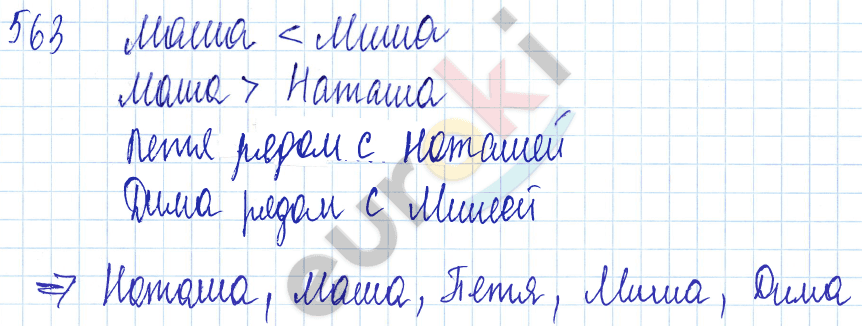 563 Маша < Миша
Маша > Наташа
Петя рядом с Наташей
Дима рядом с Мишей
⇒ Наташа, Маша, Петя, Миша, Дима
euroki